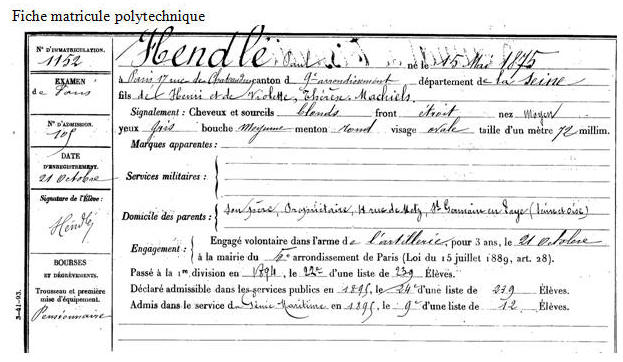 Fiche matricule polytechnique
N° D'IMMATRICULATION.
1152
EXAMEN
de Paris
N° D'ADMISSION.
109
DATE
D'ENREGISTREMENT.
21 Octobre
Signature de l'Élève :
Hendlé
BOURSES
ET DÉGRÈVEMENTS.
Trousseau et première
mise d'équipement.
Pensionnaire
3-41-93.
Hendlé Paul né le 15 Mai 1875
à Paris 17 rue de canton d 9e arrondissement département de la Seine
fils de Henri et de Violette, Thérèse Machiels
Signalement : Cheveux et sourcils blonds front étroit nez Moyen
yeux gris bouche Moyenne menton rond visage ovale taille d'un mètre 72 millim.
Marques apparentes :
Services militaires :
Domicile des parents : Son père, Propriétaire, 14 rue de Metz, St Germain en Laye (Seine et oise)
Engagement : Engagé volontaire dans l'arme de l'artillerie, pour 3 ans, le 21 Octobre
à la mairie du arrondissement de Paris (Loi du 15 juillet 1889, art. 28).
Passé à la 1re division en 1894, le 222e d'une liste de 239 Élèves.
Déclaré admissible dans les services publics en 1895, le 24e d'une liste de 219 Élèves.
Admis dans le service du Génie Maritime en 1895, le 9e d'une liste de 12 Élèves.